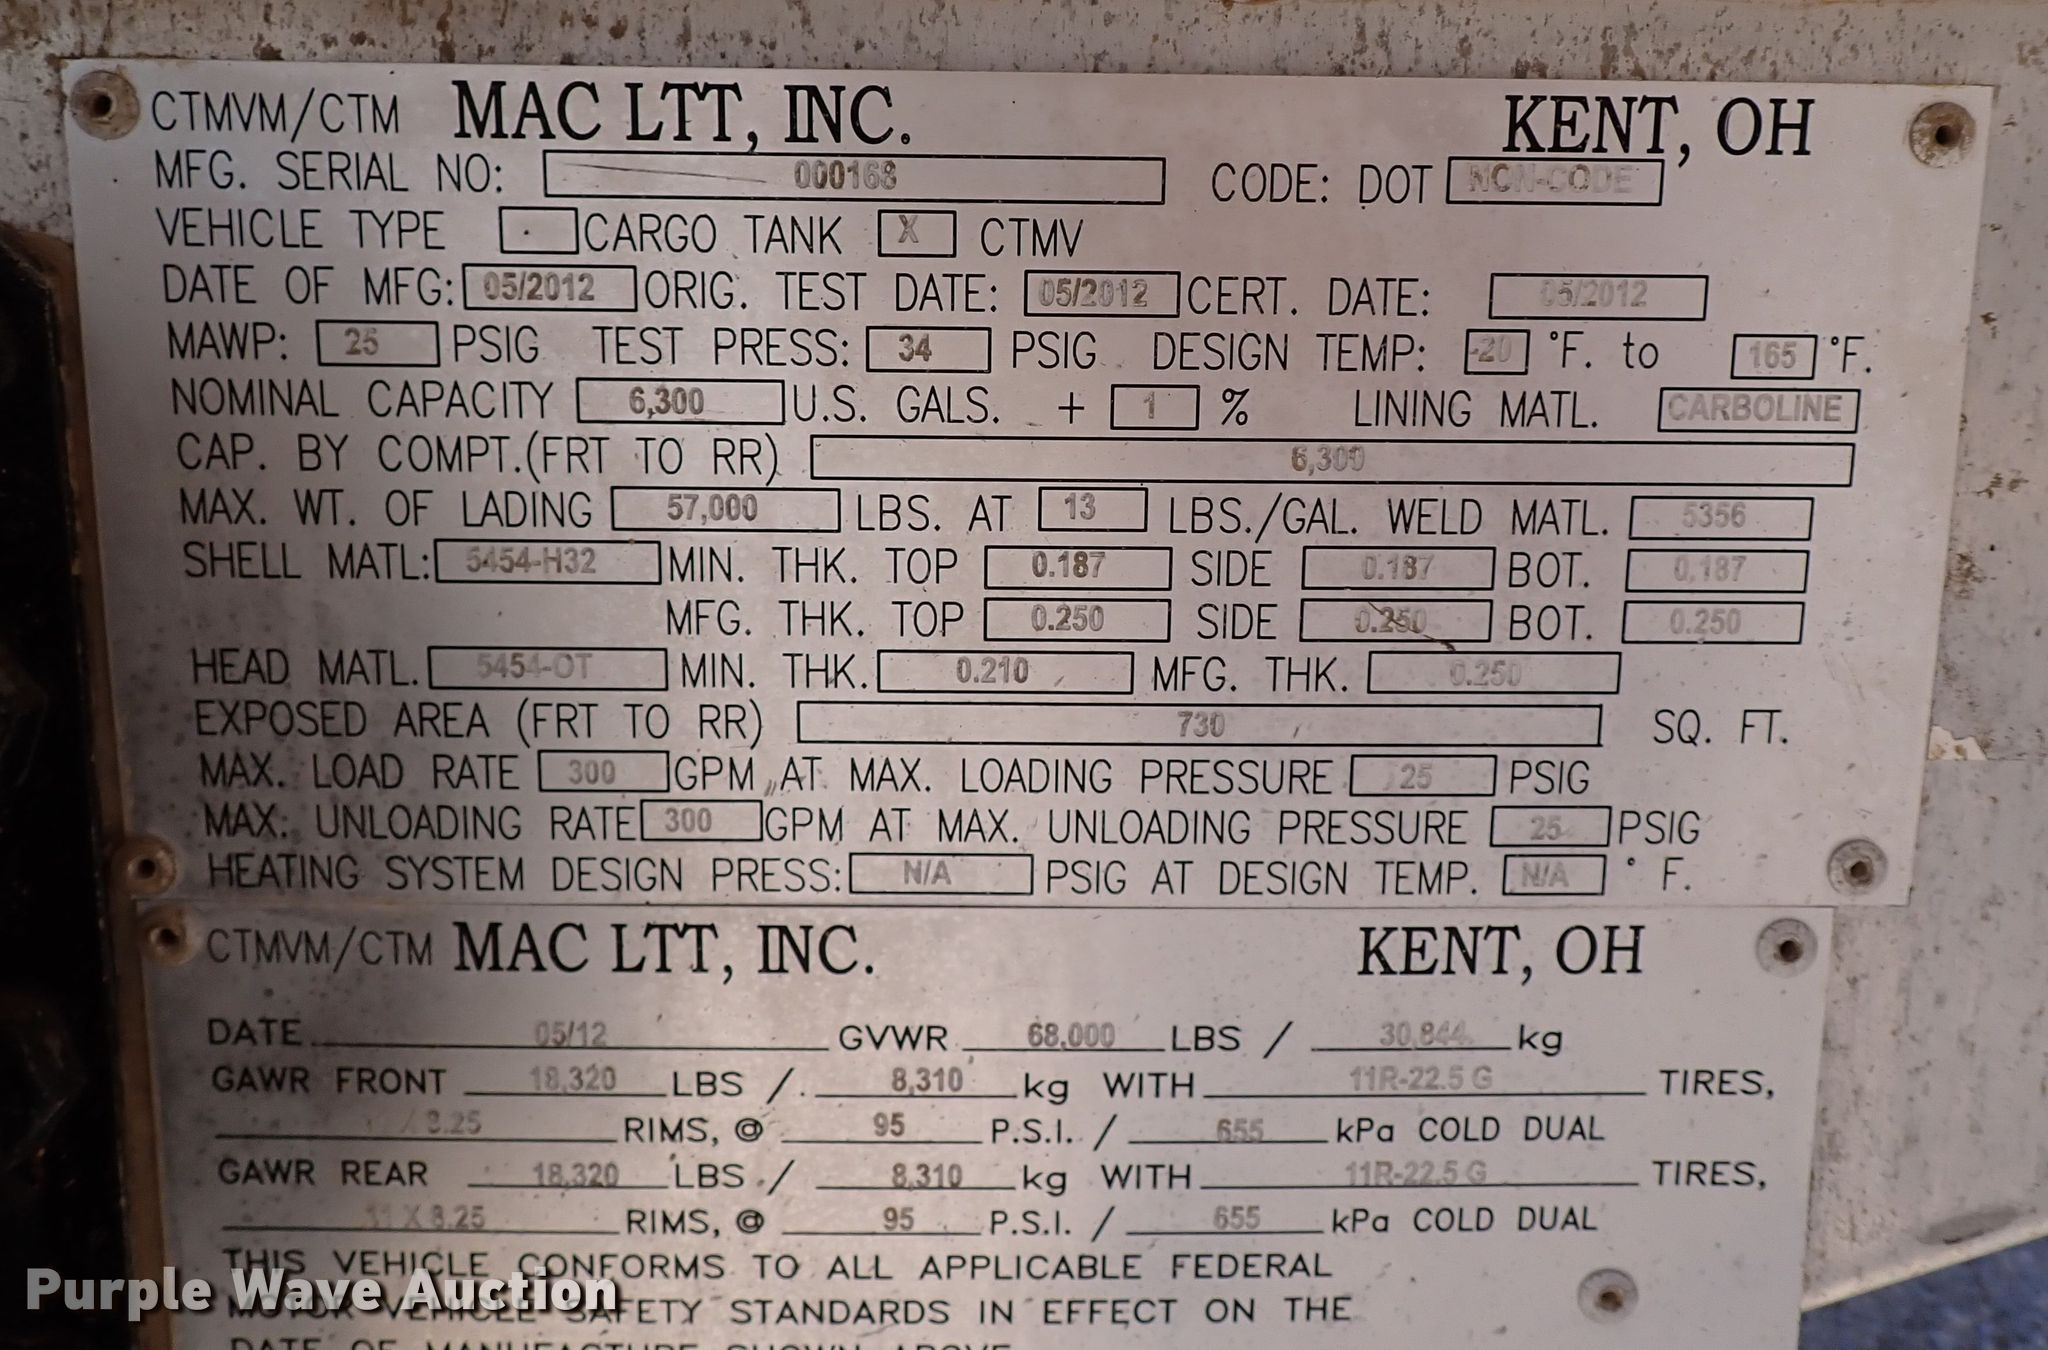 CTMVM/CTM MAC LTT, INC. KENT, OH
MFG. SERIAL NO: 000168 CODE: DOT NON-CODE
VEHICLE TYPE CARGO TANK X CTMV
DATE OF MFG: 05/2012 ORIG. TEST DATE: 05/2012 CERT. DATE: 05/2012
MAWP: 25 PSIG TEST PRESS: 34 PSIG DESIGN TEMP: -20 °F. to 165 °F.
NOMINAL CAPACITY 6,300 U.S. GALS. + 1 % LINING MATL. CARBOLINE
CAP. BY COMPT.(FRT TO RR) 6,300
MAX. WT. OF LADING 57,000 LBS. AT 13 LBS./GAL. WELD MATL. 5356
SHELL MATL: 5454-H32 MIN. THK. TOP 0.187 SIDE 0.187 BOT. 0.187
MFG. THK. TOP 0.250 SIDE 0.250 BOT. 0.250
HEAD MATL. 5454-OT MIN. THK. 0.210 MFG. THK. 0.250
EXPOSED AREA (FRT TO RR) 730 SQ. FT.
MAX. LOAD RATE 300 GPM AT MAX. LOADING PRESSURE 25 PSIG
MAX. UNLOADING RATE 300 GPM AT MAX. UNLOADING PRESSURE 25 PSIG
HEATING SYSTEM DESIGN PRESS: N/A PSIG AT DESIGN TEMP. N/A ° F.
CTMVM/CTM MAC LTT, INC. KENT, OH
DATE 05/12 GVWR 68,000 LBS / 30,844 kg
GAWR FRONT 18,320 LBS / 8,310 kg WITH 11R-22.5 G TIRES,
X 8.25 RIMS, @ 95 P.S.I. / 655 kPa COLD DUAL
GAWR REAR 18,320 LBS / 8,310 kg WITH 11R-22.5 G TIRES,
11 X 8.25 RIMS, @ 95 P.S.I. / 655 kPa COLD DUAL
THIS VEHICLE CONFORMS TO ALL APPLICABLE FEDERAL
MOTOR VEHICLE SAFETY STANDARDS IN EFFECT ON THE
DATE OF MANUFACTURE SHOWN ABOVE
Purple Wave Auction